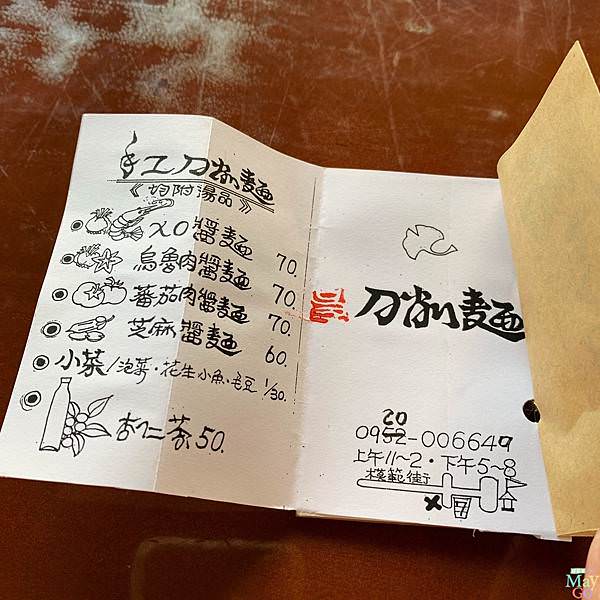 手工刀削麵
《均附湯品》
XO醬麵 70.
烏魯肉醬麵 70.
蕃茄肉醬麵 70.
芝麻醬麵 60.
小菜/泡菜·花生小魚·毛豆 1/30.
杏仁茶50.
刀削麵
20
0952-006649
上午11~2·下午5~8
模範街
May